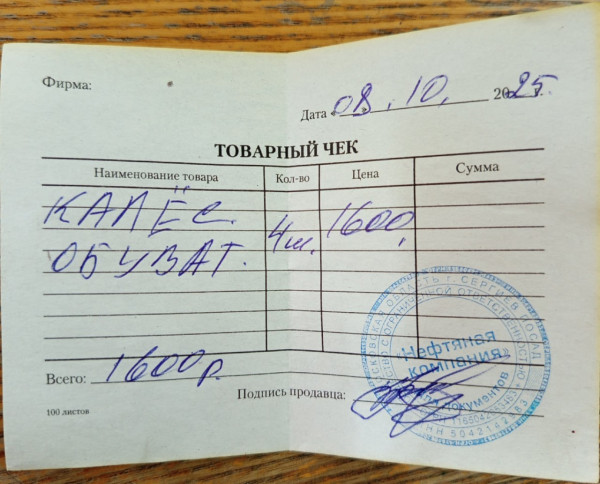 Фирма:
Дата 08.10. 2025 г.
ТОВАРНЫЙ ЧЕК
Наименование товара Кол-во Цена Сумма
КАЛЁС.
ОБУВАТ. 4ш. 1600,
Всего: 1600 р.
Подпись продавца:
100 листов
МОСКОВСКАЯ ОБЛАСТЬ г. СЕРГИЕВ ПОСАД
ОБЩЕСТВО С ОГРАНИЧЕННОЙ ОТВЕТСТВЕННОСТЬЮ
"Нефтяная
компания"
для документов
ИНН